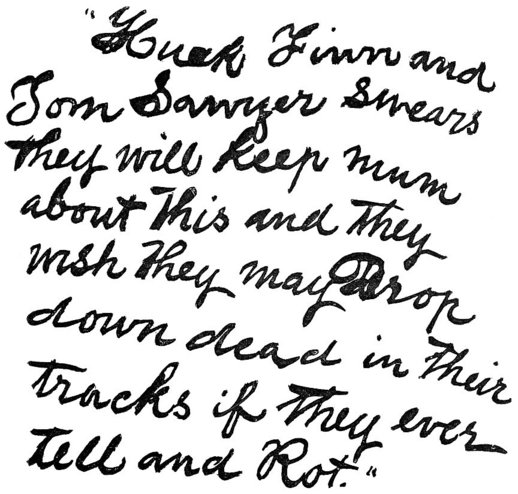 "Huck Finn and
Tom Sawyer swears
they will keep mum
about This and They
wish They may Drop
down dead in Their
tracks if They ever
tell and Rot."